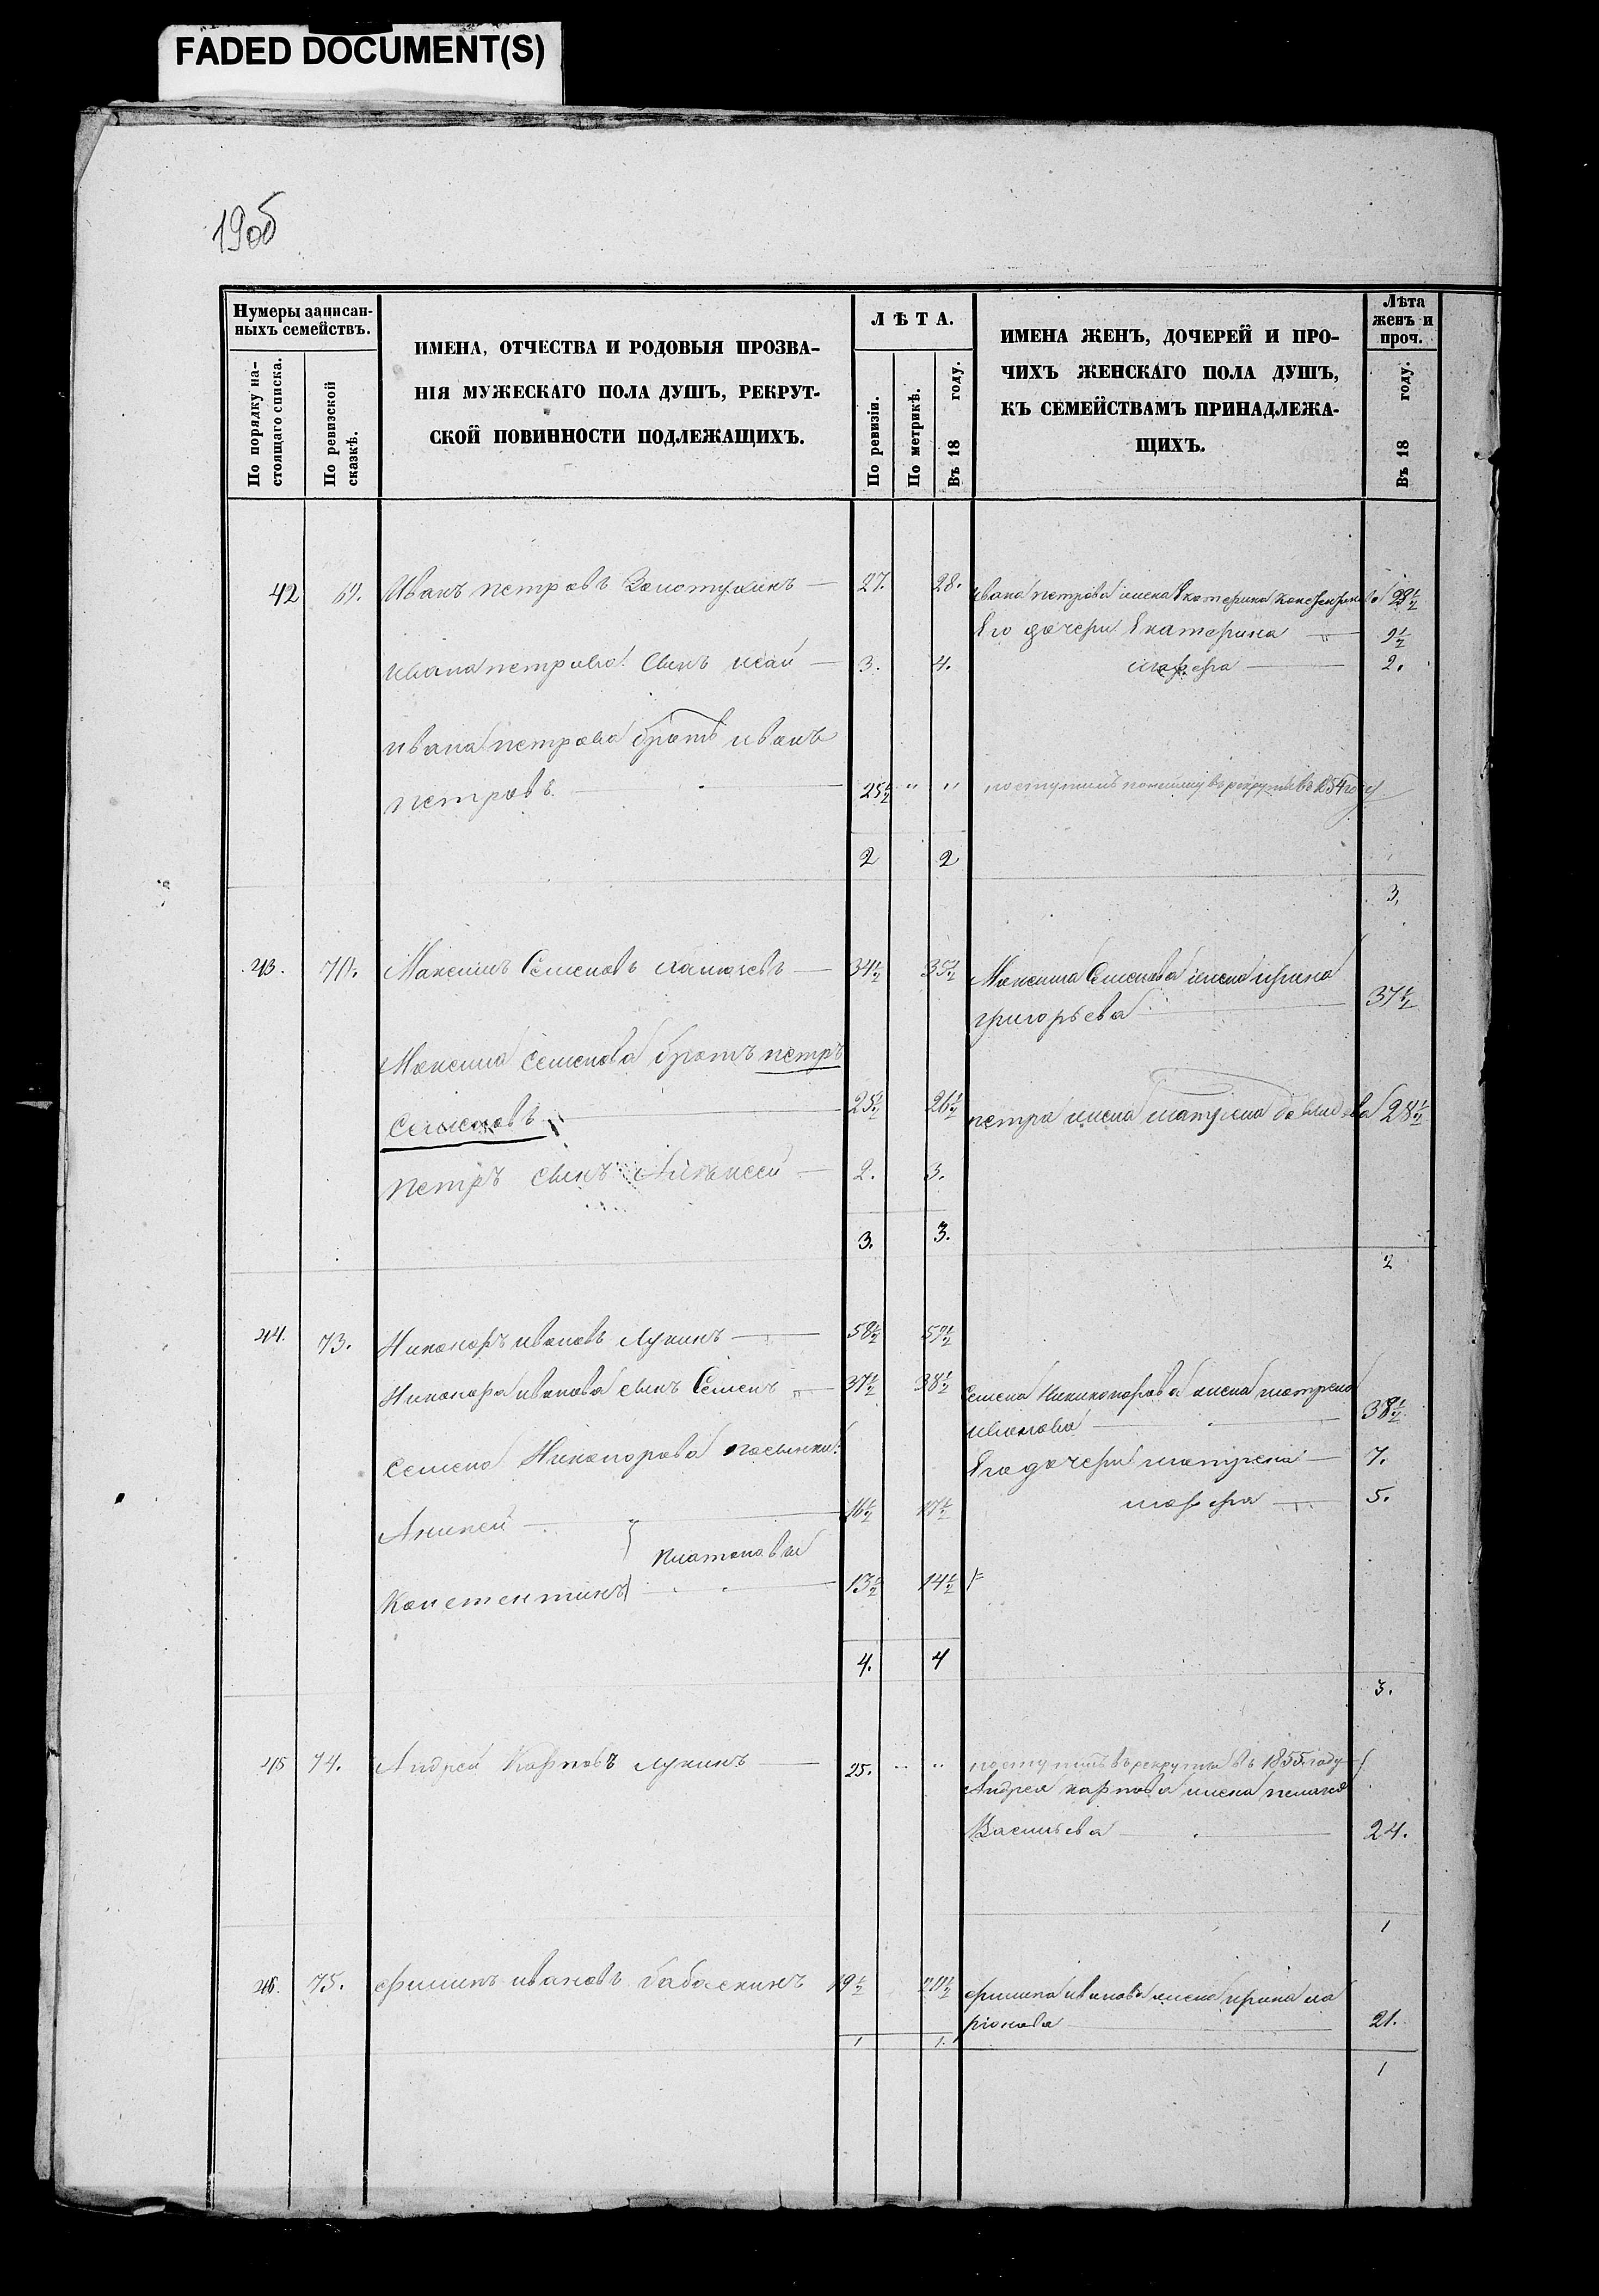 FADED DOCUMENT(S)
19об
Нумеры записан-
ныхъ семействъ.
По порядку на-
стоящаго списка.
По ревизской
сказкѣ.
ИМЕНА, ОТЧЕСТВА И РОДОВЫЯ ПРОЗВА-
НІЯ МУЖЕСКАГО ПОЛА ДУШЪ, РЕКРУТ-
СКОЙ ПОВИННОСТИ ПОДЛЕЖАЩИХЪ.
ЛѢТА.
По ревизіи.
По метрикѣ.
Въ 18 году.
ИМЕНА ЖЕНЪ, ДОЧЕРЕЙ И ПРО-
ЧИХЪ ЖЕНСКАГО ПОЛА ДУШЪ,
КЪ СЕМЕЙСТВАМЪ ПРИНАДЛЕЖА-
ЩИХЪ.
Лѣта
женъ и
проч.
Въ 18 году.
42 69. Иванъ петровъ Золотухинъ — 27. 28. Ивана петрова жена Екатерина
Его дочери Екатерина — 9½
Ивана петрова сынъ исай — 3. 4. марфа — 2.
ивана петрова братъ иванъ
петровъ — 25½ " " поступилъ в рекруты въ 1854 году
2 2
3.
43. 70. Максимъ Семеновъ — 34½ 35½ Максима Семенова жена ирина
григорьева — 37½
Максима Семенова братъ петръ
Семеновъ — 25½ 26½ петра жена матрена давыдова 28½
петръ сынъ Алексей — 2. 3.
3. 3.
2
44. 73. Никаноръ ивановъ Лукинъ — 58½ 59½
Никанора иванова сынъ Семенъ — 37½ 38½ Семена жена матрена
иванова — 38½
Семена Никанорова пасынки: Его дочери матрена — 7.
Аникей — 16½ 17½ марфа — 5.
Платоновы
Констентинъ — 13½ 14½
4. 4
3.
45 74. Андрей Карповъ лукинъ — 25. " " поступилъ въ рекруты въ 1855 году
Андрея карпова жена пелагея
Васильева — 24.
1
46. 75. филипъ ивановъ бабаскинъ 19½ 20½ филипа иванова жена ирина ла
ріонова — 21.
1 1.
1